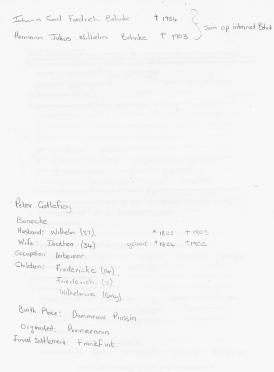 Johann Carl Friedrich Behnke † 1934
Hermann Julius Wilhelm Behnke † 1903
Son op internet
Peter Godeffroy
Benecke
Husband: Wilhelm (37). * 1822 † 1903
Wife: Dorothea (34) * 1824 † 1902
Occupation Labourer
Children: Friedericke (14)
Friederich (7)
Wilhelmine (baby)
Birth Place: Dammnau Prussia
Originated: Pommerania
Final Settlement Frankfurt